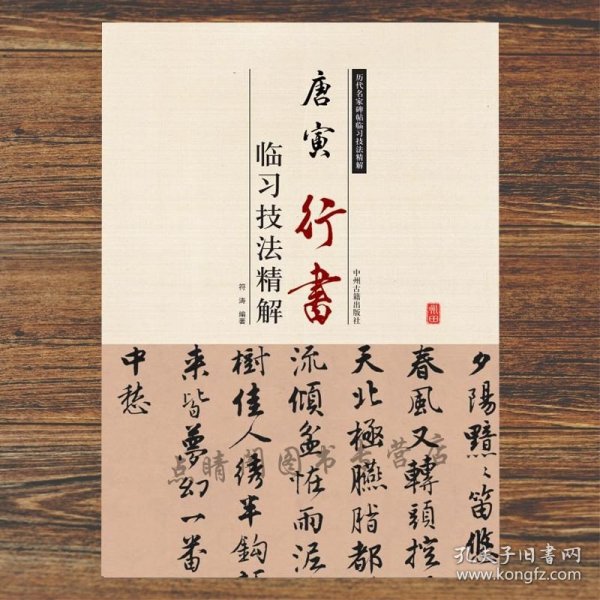 历代名家碑帖临习技法精解
唐寅
行書
临习技法精解
中州古籍出版社
符涛 编著
夕陽黯〻笛悠
春風又轉頭控
天北極臙脂都
流傾盆怪雨泥
樹佳人綉半鈎
來皆夢幻一番
中愁
点睛阁图书专营店
孔夫子旧书网
www.kongfz.com